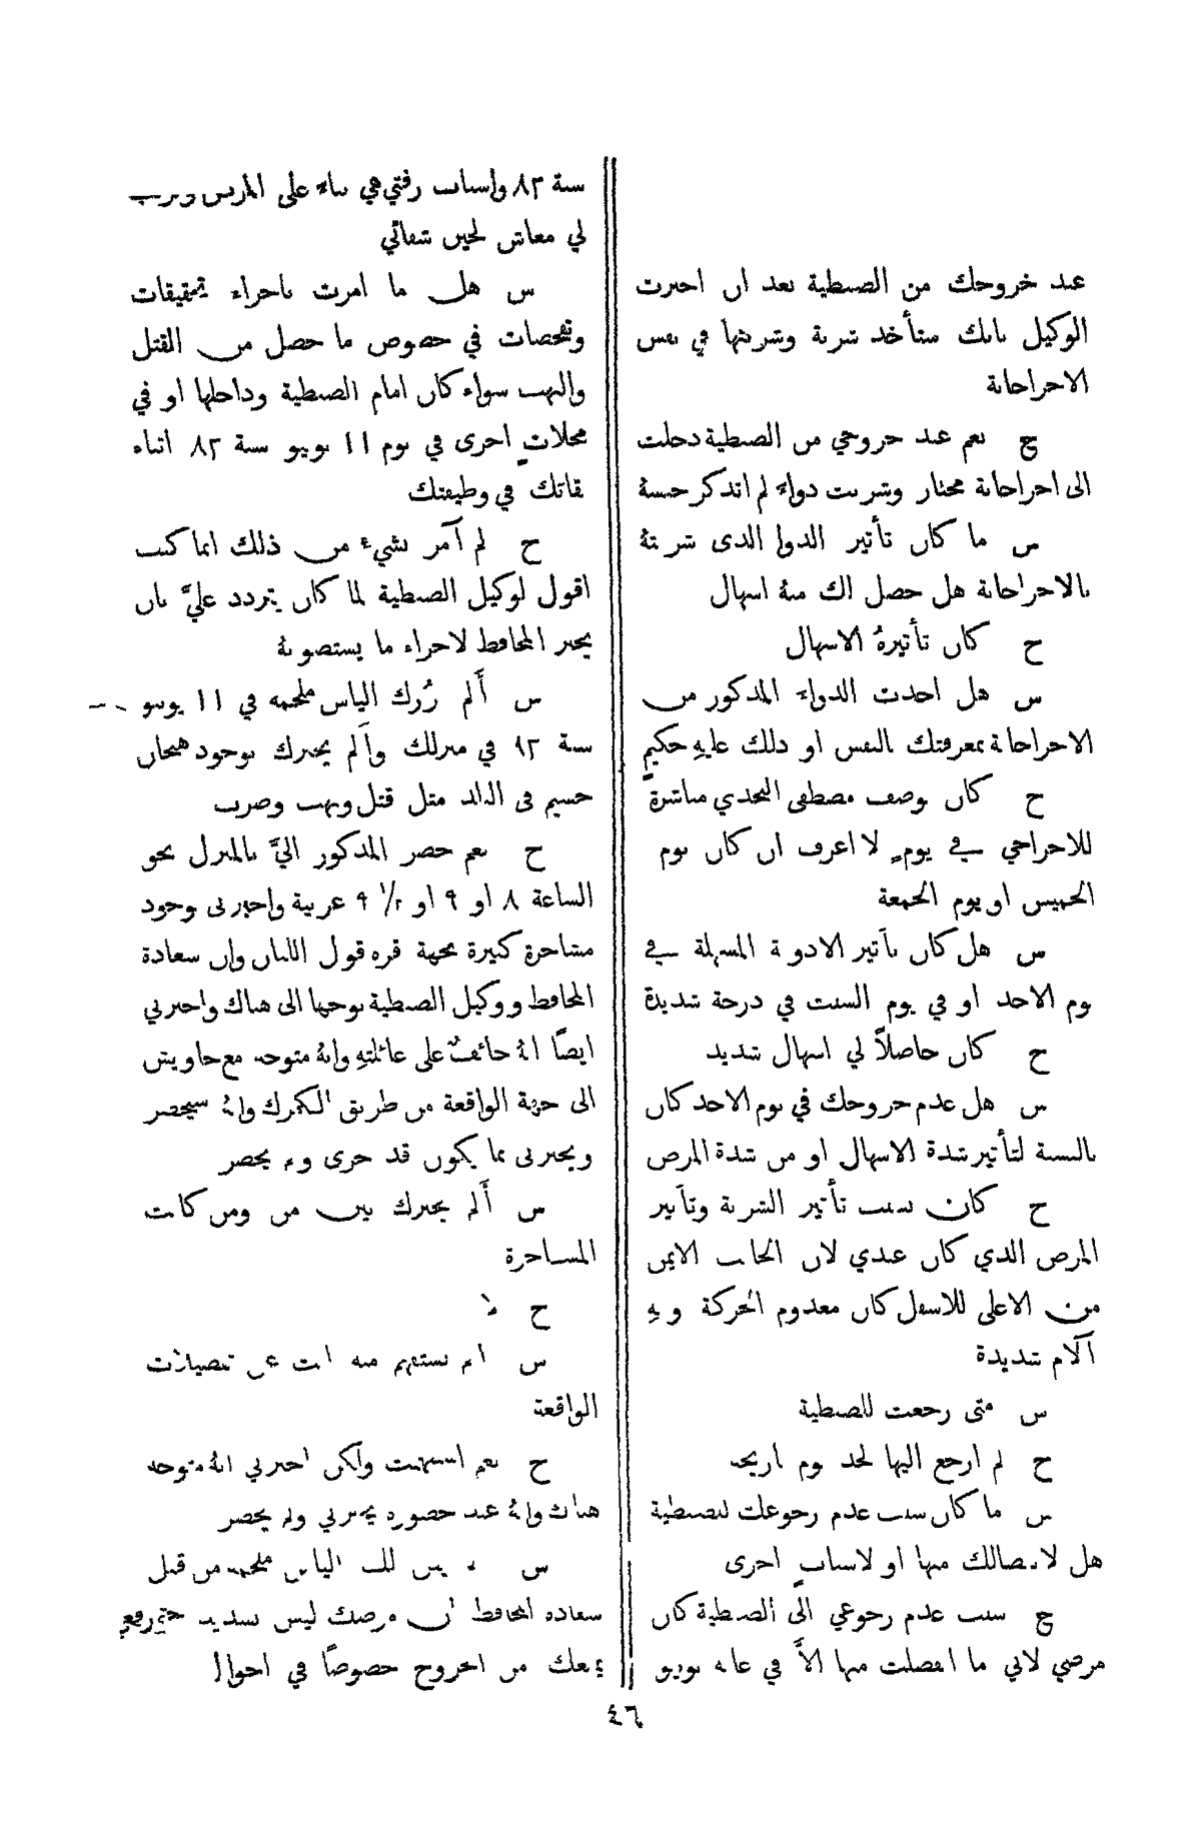 عند خروجك من الضبطية بعد ان اخبرت
الوكيل بانك ستأخذ شربة وشربتها في نفس
الاجزاخانة
ج نعم عند خروجي من الضبطية دخلت
الى اجزاخانة مختار وشربت دواءً لم اتذكر جنسهُ
س ما كان تأثير الدوا الذى شربتهُ
بالاجزاخانة هل حصل لك منهُ اسهال
ج كان تأثيرهُ الاسهال
س هل اخذت الدواء المذكور من
الاجزاخانة بمعرفتك بالنفس او دلك عليهِ حكيم
ج كان بوصف مصطفى النجدي مباشرةً
للاجزاجي في يومٍ لا اعرف ان كان يوم
الخميس او يوم الجمعة
س هل كان تأثير الادوية المسهلة في
يوم الاحد او في يوم السبت في درجة شديدة
ج كان حاصلاً لي اسهال شديد
س هل عدم خروجك في يوم الاحد كان
بالنسبة لتأثير شدة الاسهال او من شدة المرض
ج كان بسبب تأثير الشربة وتأثير
المرض الذي كان عندي لان الجانب الايمن
من الاعلى للاسفل كان معدوم الحركة وبهِ
آلام شديدة
س متى رجعت للضبطية
ج لم ارجع اليها لحد يوم تاريخه
س ما كان سبب عدم رجوعك للضبطية
هل لانفصالك منها او لاسبابٍ اخرى
ج سبب عدم رجوعي الى الضبطية كان
مرضي لاني ما انفصلت منها الاَّ في غاية يونيو
سنة ٨٢ واسباب رفتي هي بناءً على المرض وترتب
لي معاش لحين شفائي
س هل ما امرت باجراء تحقيقات
وتفحصات في خصوص ما حصل من القتل
والنهب سواء كان امام الضبطية وداخلها او في
محلاتٍ اخرى في يوم ١١ يونيو سنة ٨٢ اثناء
بقائك في وظيفتك
ج لم آمر بشيء من ذلك انما كنت
اقول لوكيل الضبطية لما كان يتردد عليَّ بان
يخبر المحافظ لاجراء ما يستصوبهُ
س أَلم يزُرك الياس ملحمه في ١١ يونيو
سنة ٨٢ في منزلك وأَلم يخبرك بوجود هيجان
جسيم في البلد مثل قتل ونهب وضرب
ج نعم حضر المذكور اليَّ بالمنزل نحو
الساعة ٨ او ٩ او ½ ٩ عربية واخبرني بوجود
مشاجرة كبيرة بجهة قره قول اللبان وان سعادة
المحافظ ووكيل الضبطية توجها الى هناك واخبرني
ايضًا انهُ خائفٌ على عائلتهِ وانهُ متوجه مع جاويش
الى جهة الواقعة من طريق الكمرك وانهُ سيحضر
ويخبرني بما يكون قد جرى ولم يحضر
س أَلم يخبرك بين من ومن كانت
المشاجرة
ج لا
س الم تستفهم منه انت عن تفصيلات
الواقعة
ج نعم استفهمت ولكن اخبرني انهُ متوجه
هناك وانهُ عند حضوره يخبرني ولم يحضر
س الياس ملحمه من قبل
سعادة المحافظ ان مرضك ليس شديد حتى
يمنعك من الخروج خصوصًا في احوال
٤٦